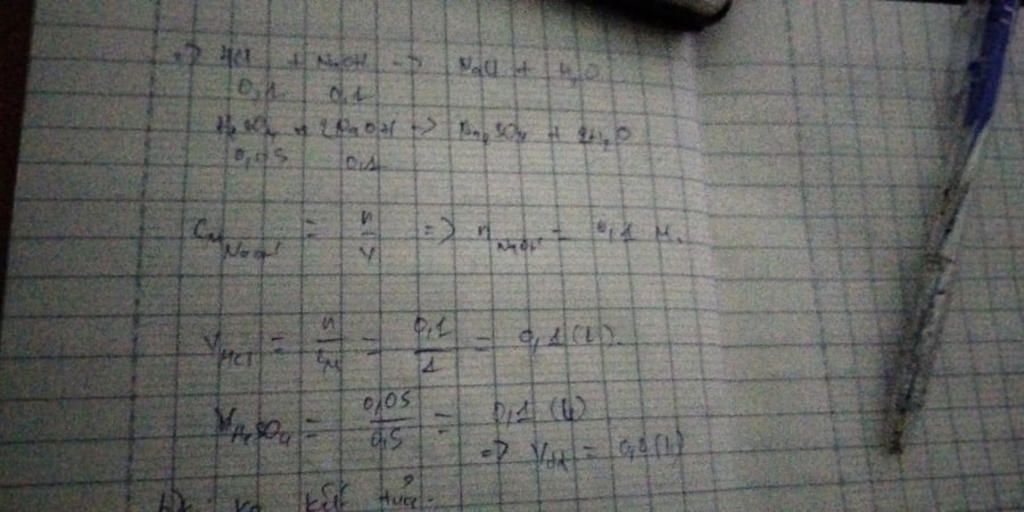 => HCl + NaOH -> NaCl + H2O
0,1 0,1
H2SO4 + 2NaOH -> Na2SO4 + 2H2O
0,05 0,1
CM NaOH = n/V => n NaOH = 0,1 M.
V HCl = n/CM = 0,1/1 = 0,1 (l).
V H2SO4 = 0,05/0,5 = 0,1 (l)
=> Vdd =
b)